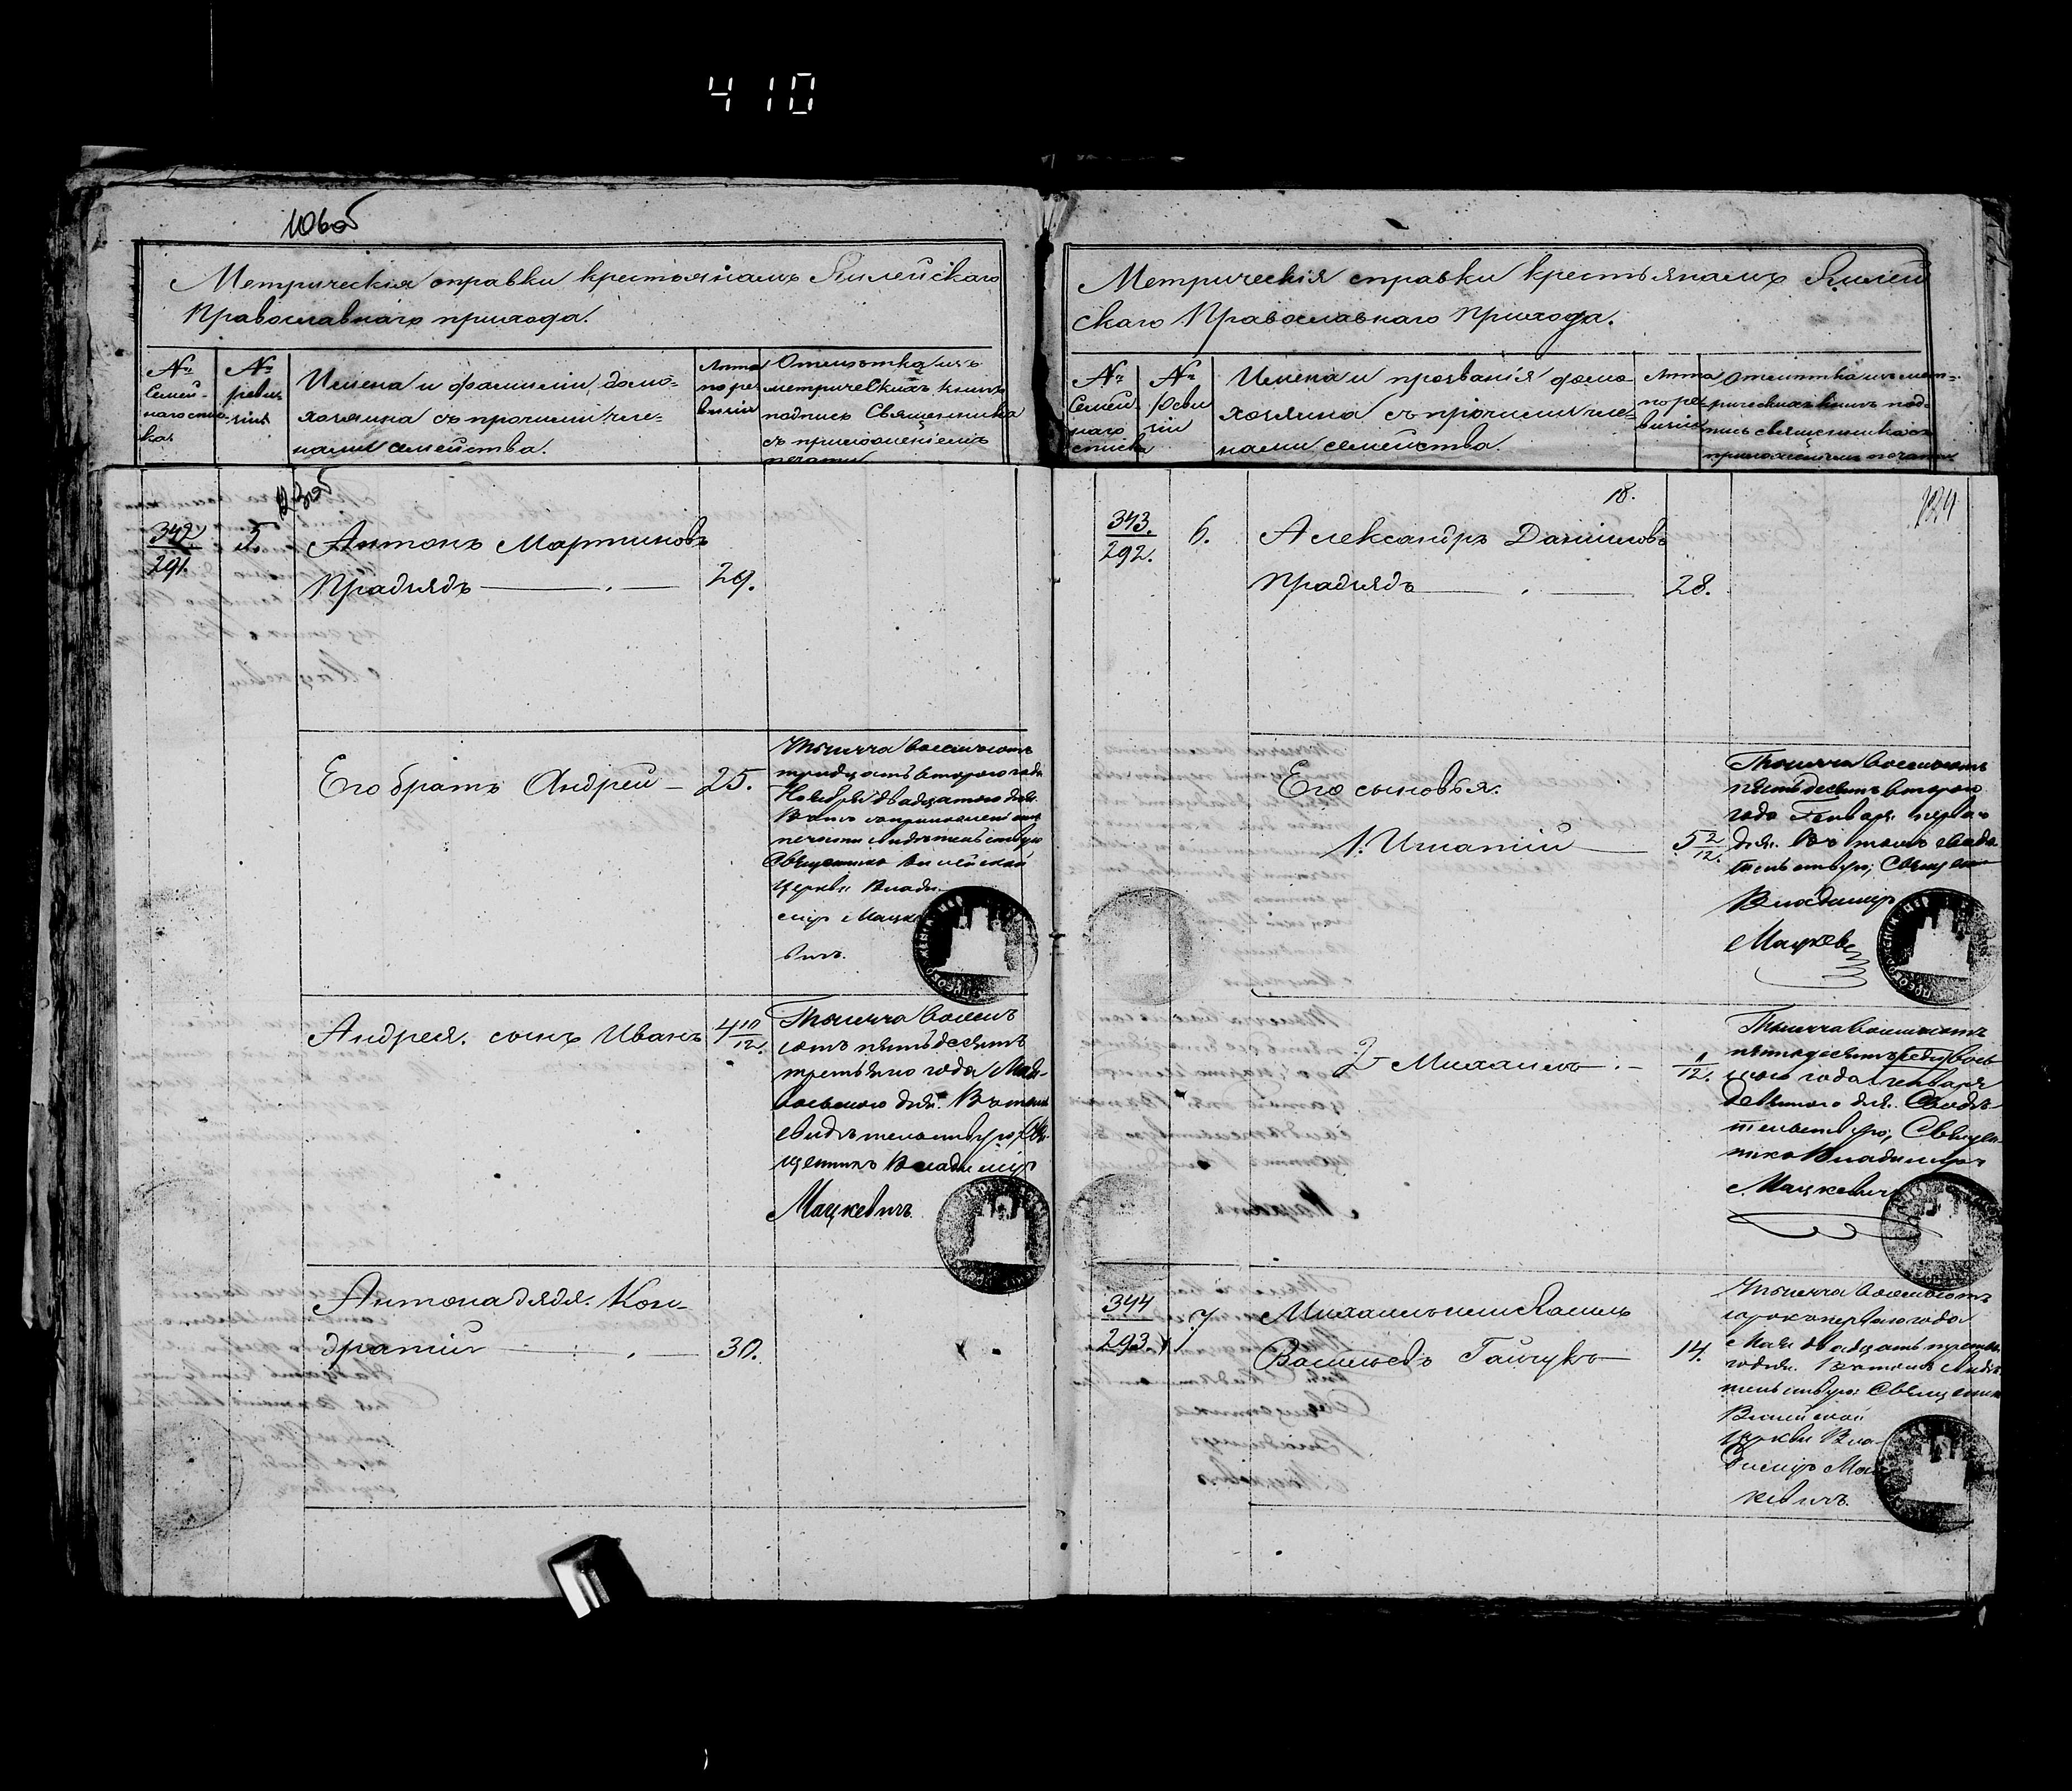 410
106об
Метрическія справки крестьянамъ
Православнаго прихода.
№
Семей-
наго спис-
ка
№
реви-
зіи
Имена и фамиліи домо-
хозяина съ прочими чле-
нами семейства.
Лѣта
по ре-
визіи
Отмѣтка изъ
метрическихъ книгъ
подпись Священника
съ приложеніемъ
печати
342
291.
5.
Антонъ Мартиновъ
Прадзядъ
29.
Его братъ Андрей
25.
Тысяча восемьсотъ
тридцать второго года
Ноября двадцатого дня.
Въ томъ съ приложеніемъ
печати свидѣтельствую
Священникъ
Церкви Влади
миръ Мацке
вичъ.
Андрея. сынъ Иванъ
4 10/12.
Тысяча восемь
сотъ пятьдесятъ
третьяго года Мая
восьмого дня. Въ томъ
свидѣтельствую, Свя-
щенникъ Владиміръ
Мацкевичъ.
Антона дядя. Кон-
дратій
30.
Метрическія справки крестьянамъ
скаго Православнаго Прихода.
№
Семей
наго
списка
№
Реви
зіи
Имена и прозванія домо-
хозяина съ прочими чле-
нами семейства.
Лѣта
по ре-
визіи
Отмѣтка изъ мет-
рическихъ книгъ под-
пись священника съ
приложеніемъ печати
18.
343.
292.
6.
Александръ Даниловъ
Прадзядъ
28.
Его сыновья.
1. Игнатій
5 2/12.
Тысяча восемьсотъ
пятьдесятъ второго
года Генваря перваго
дня. Въ томъ свидѣ
тельствую, Священ
Владимиръ
Мацкев
2 Михаилъ
1/12.
Тысяча восемьсотъ
пятьдесятъ
года Генваря
дня. Свидѣ-
тельствую, Священ-
никъ Владимиръ
Мацкевичъ
344
293.
7
Васильевъ
14.
Тысяча восемьсотъ
сорокъ перваго года
Мая двадцать третья-
го дня. Въ томъ свидѣ
тельствую: Священник
Церкви Вла-
димиръ Мац
кевичъ.